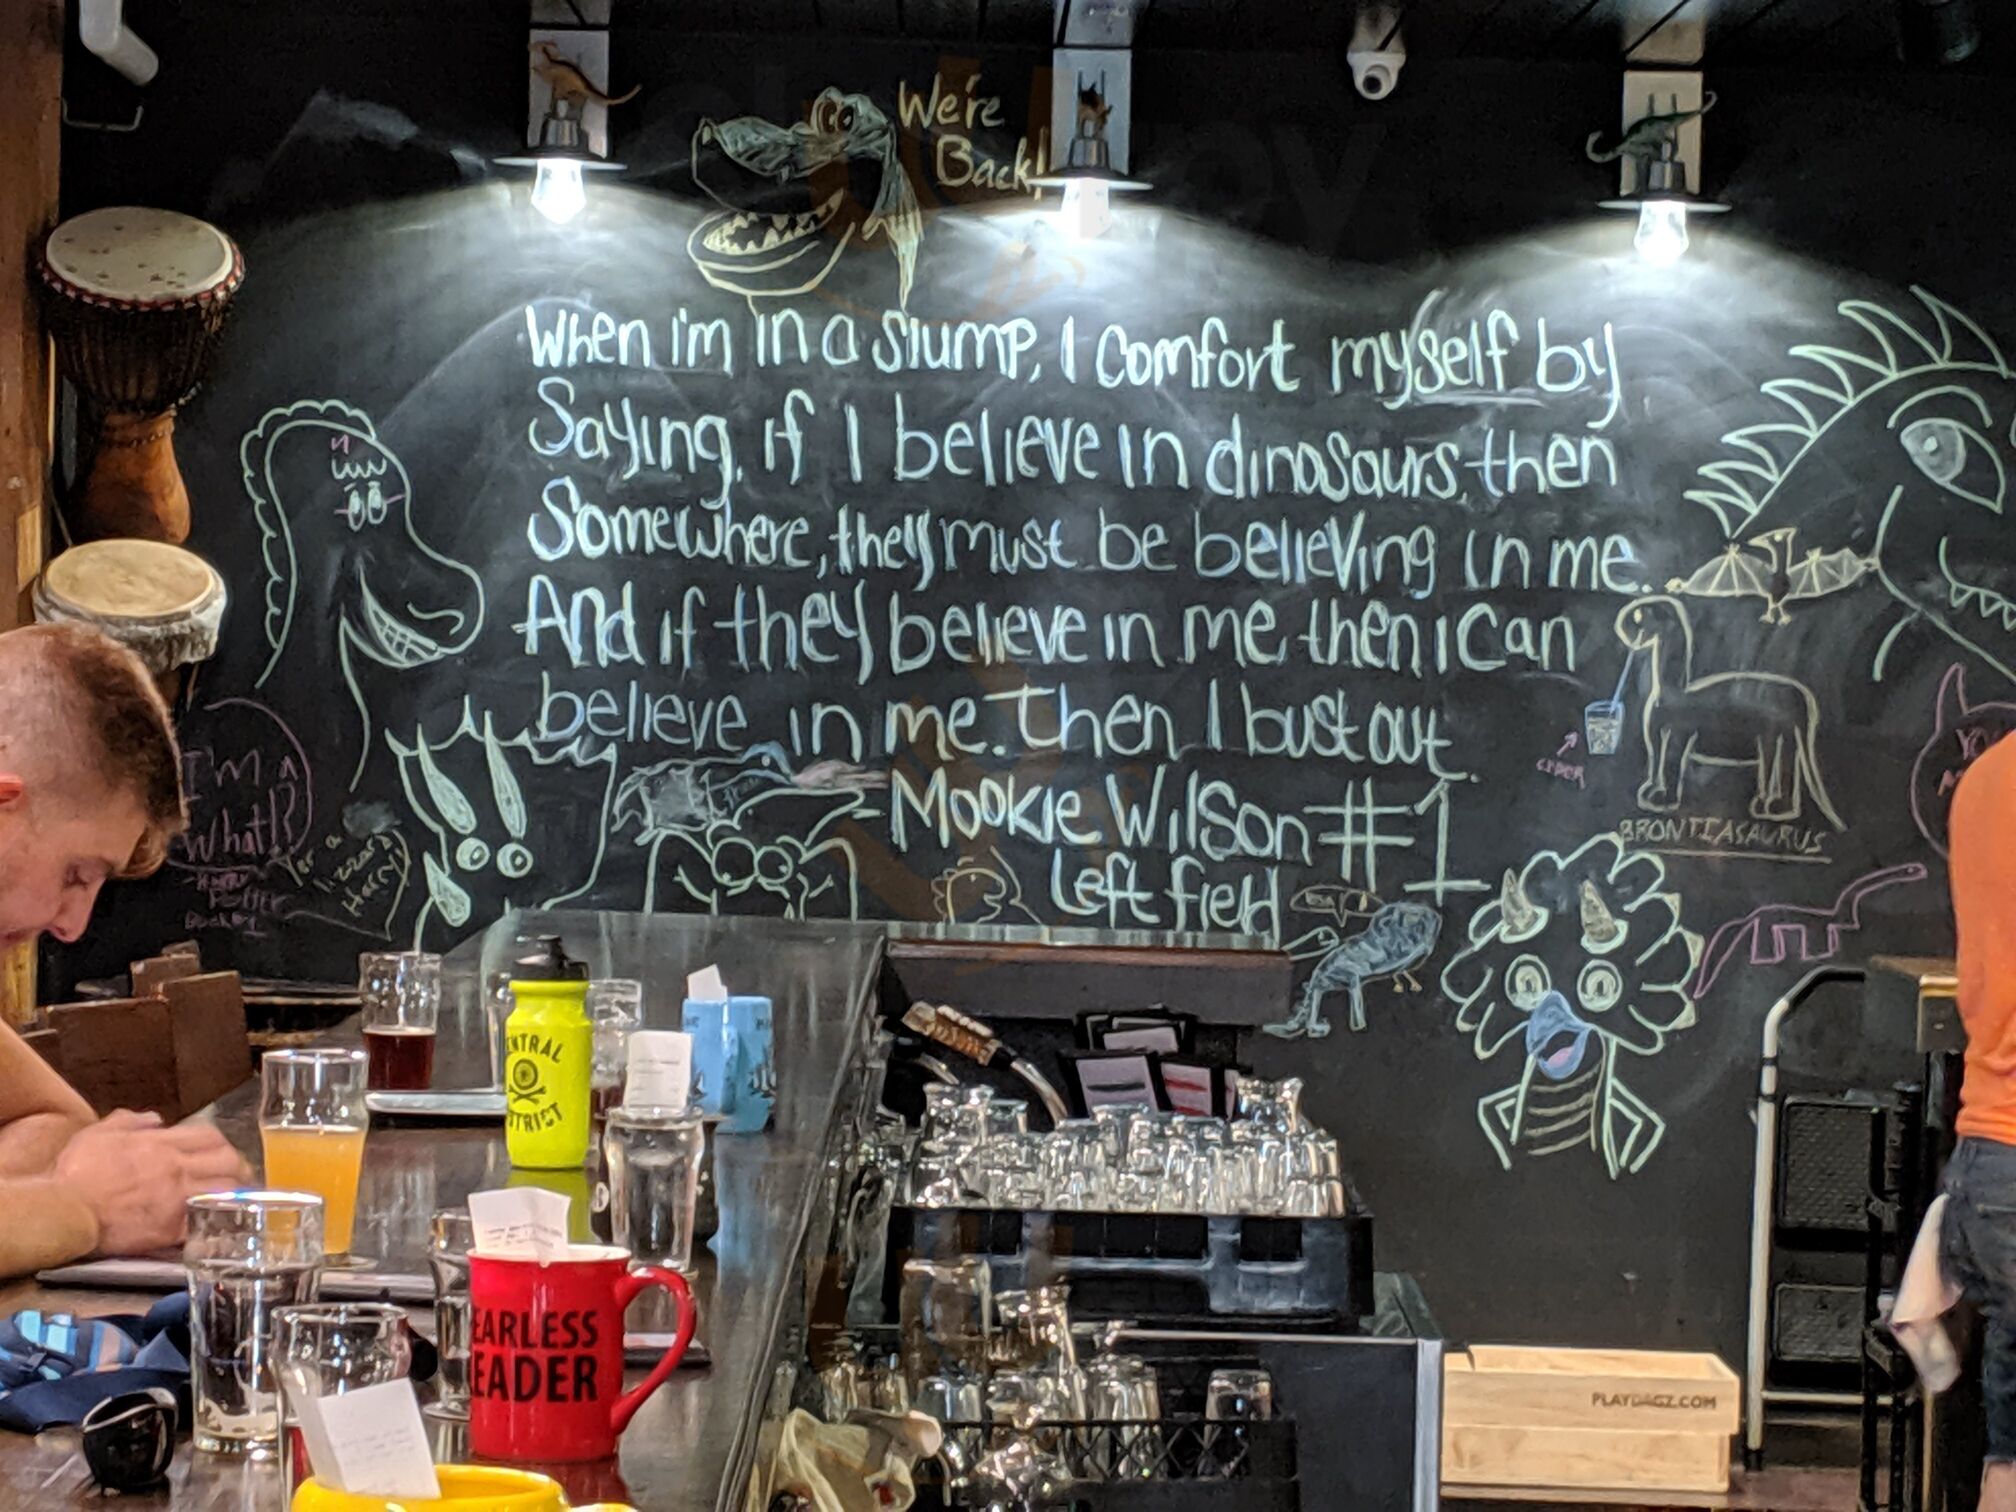 We're
Back!
When i'm in a slump, I comfort myself by
Saying, if I believe in dinosaurs, then
Somewhere, they must be believing in me.
And if they believe in me, then i can
believe in me. Then I bust out.
Mookie Wilson #1
Left field
I'm
What!?
Harry
Potter
Yer a
lizzard
Harry!
CIDER
BRONTIASAURUS
ENTRAL
STRICT
EARLESS
EADER
PLAYDAGZ.COM